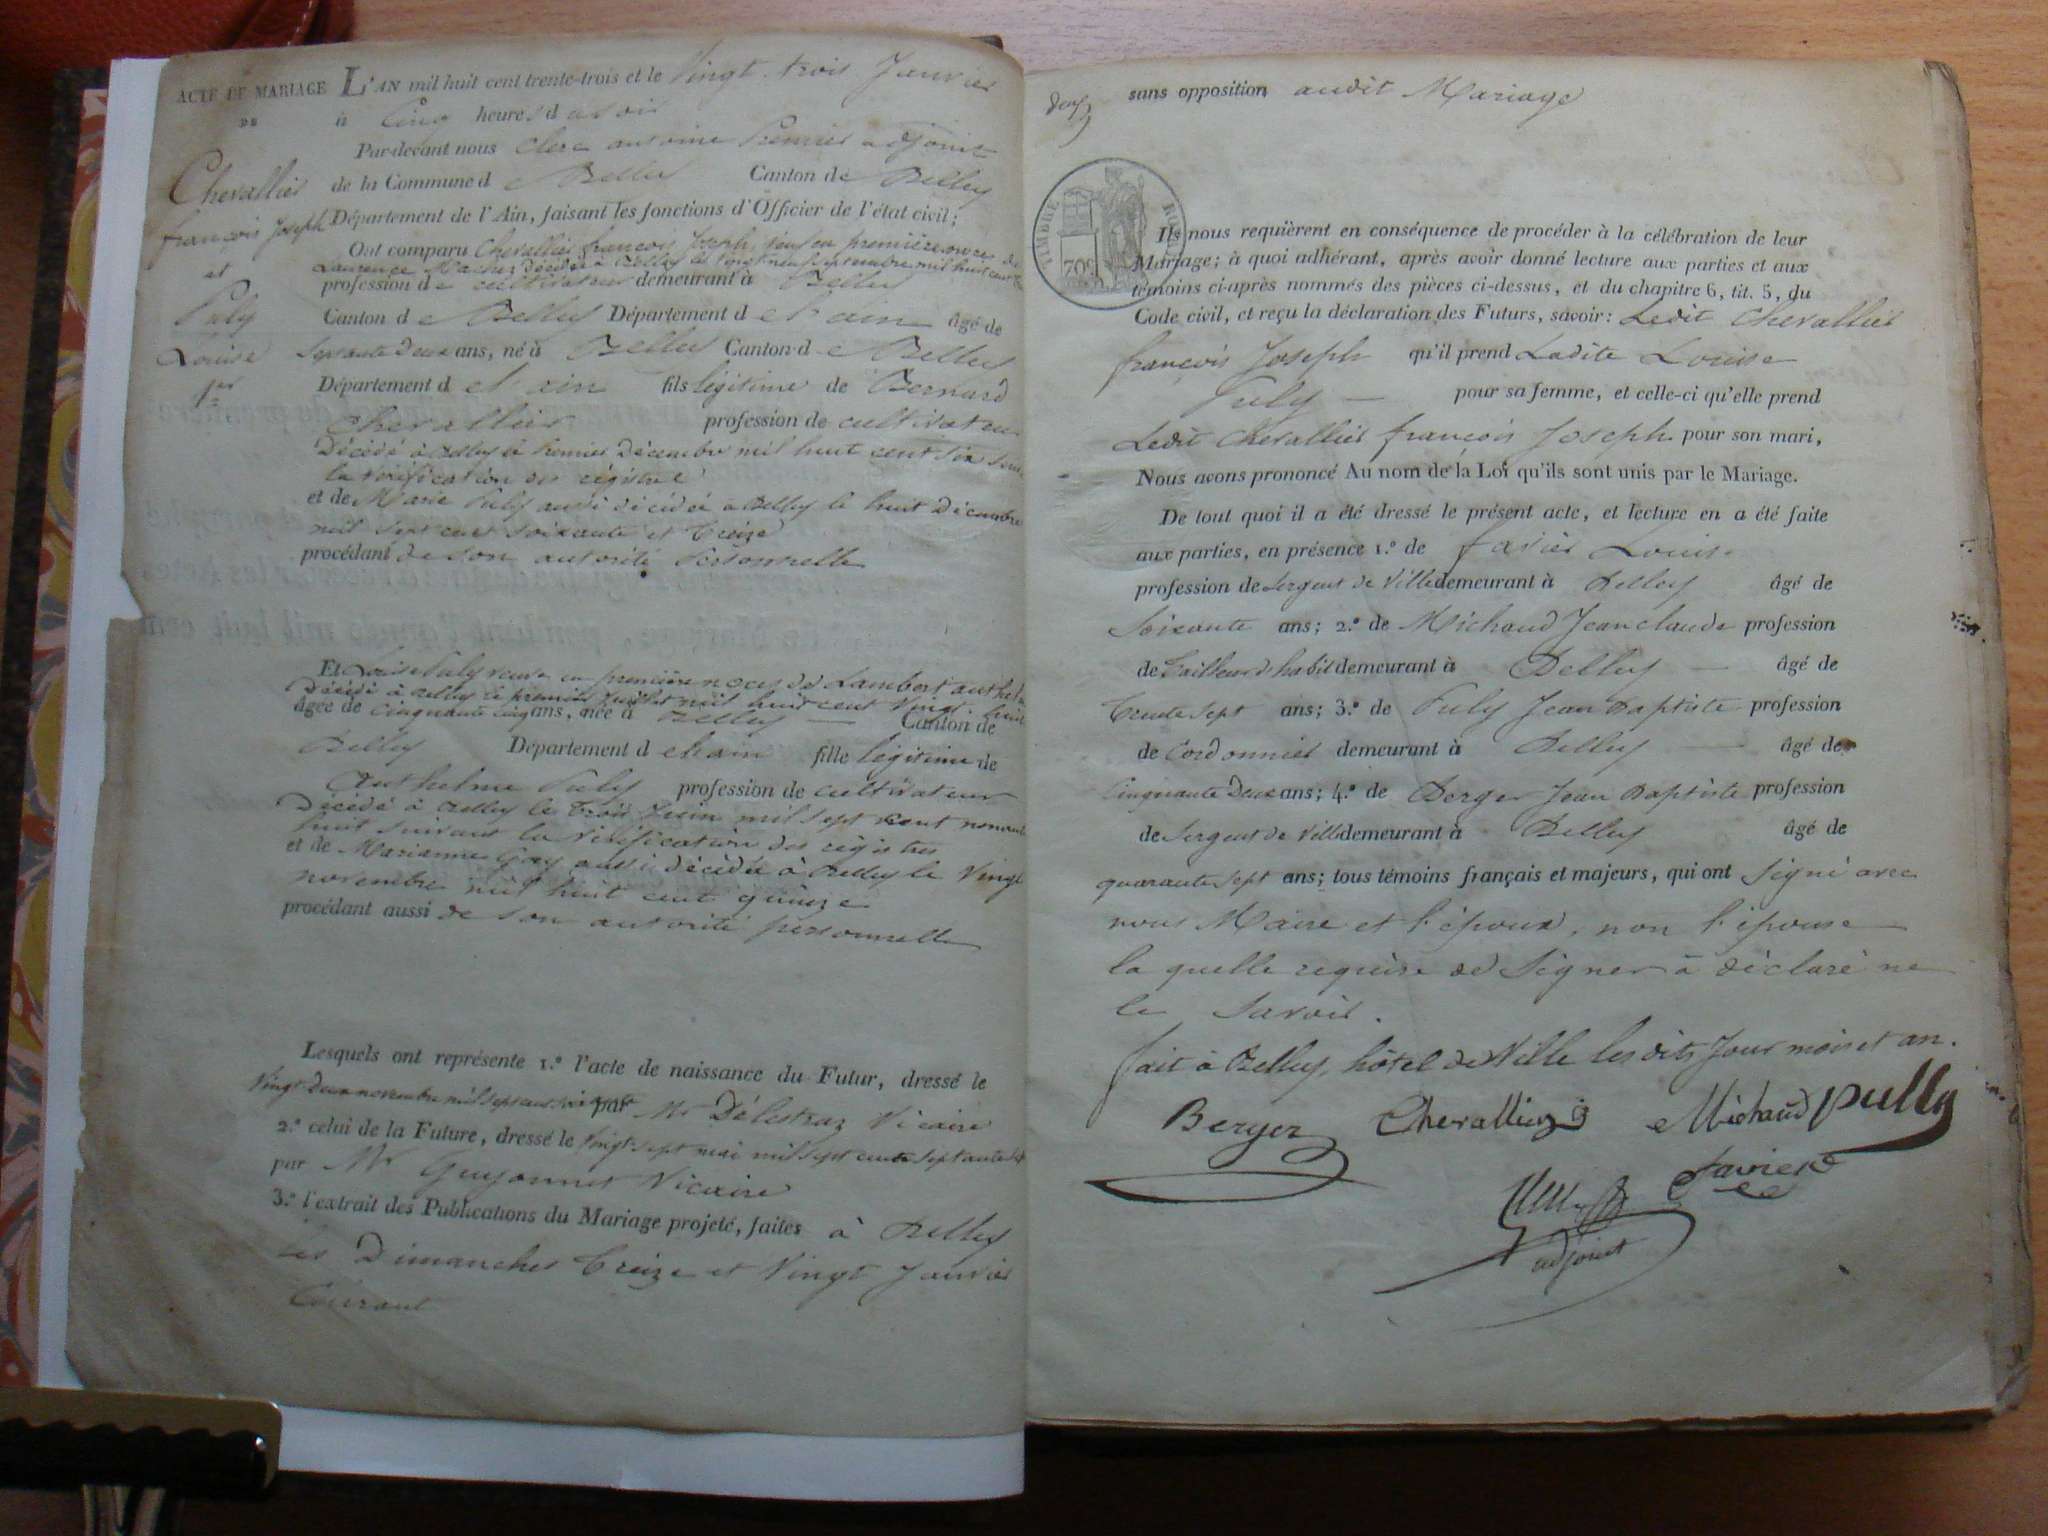 ACTE DE MARIAGE
DE
Chevallier
françois Joseph
et
Puly
Louise
1er
L'AN mil huit cent trente-trois et le Vingt trois Janvier
à Cinq heures d u soir
Par-devant nous Clerc antoine Premier adjoint
de la Commune d e Belley Canton de Belley
Département de l'Ain, faisant les fonctions d'Officier de l'état civil;
Ont comparu Chevallier françois Joseph, veuf en première noces de
Laurence décédée à Belley le vingt neuf septembre mil huit cent
profession de cultivateur demeurant à Belley
Canton d e Belley Département d e l'ain âgé de
Septante deux ans, né à Belley Canton d e Belley
Département d e l'ain fils légitime de Bernard
Chevallier profession de cultivateur
Décédé à Belley le premier Décembre mil huit cent six suiv
la vérification des régistre
et de Marie Puly aussi décédée à Belley le huit Décembre
mil sept cent soixante et treize
procédant de son autorité Personnelle
Et Louise Puly veuve en première noces de Lambert anthel
Décédé à Belley le premier Juillet mil huit cent vingt huit
âgée de cinquante cinq ans, née à Belley Canton de
Belley Département d e l'ain fille légitime de
Anthelme Puly profession de cultivateur
Décédé à Belley le trois Juin mil sept cent nonante
huit suivant la vérification des régistres
et de Marianne Goy aussi décédée à Belley le Vingt
novembre mil huit cent quinze
procédant aussi de son autorité personnelle
Lesquels ont représenté 1.º l'acte de naissance du Futur, dressé le
Vingt deux novembre mil sept cent soixante par Mr Délestraz Vicaire
2.º celui de la Future, dressé le Vingt sept mai mil sept cent septante sept
par Mr Guyonnet Vicaire
3.º l'extrait des Publications du Mariage projeté, faites à Belley
les Dimanches treize et Vingt Janvier
Courant
deux
sans opposition audit Mariage
TIMBRE ROYAL
70c
Ils nous requièrent en conséquence de procéder à la célébration de leur
Mariage; à quoi adhérant, après avoir donné lecture aux parties et aux
témoins ci-après nommés des pièces ci-dessus, et du chapitre 6, tit. 5, du
Code civil, et reçu la déclaration des Futurs, savoir: Ledit Chevallier
françois Joseph qu'il prend Ladite Louise
Puly — pour sa femme, et celle-ci qu'elle prend
Ledit Chevallier françois Joseph pour son mari,
Nous avons prononcé Au nom de la Loi qu'ils sont unis par le Mariage.
De tout quoi il a été dressé le présent acte, et lecture en a été faite
aux parties, en présence 1.º de favier Louis
profession de Sergent de Ville demeurant à Belley âgé de
Soixante ans; 2.º de Michaud Jean claude profession
de Tailleur d'habit demeurant à Belley — âgé de
Trente sept ans; 3.º de Puly Jean Baptiste profession
de Cordonnier demeurant à Belley — âgé de
Cinquante Deux ans; 4.º de Berger Jean Baptiste profession
de Sergent de Ville demeurant à Belley âgé de
quarante sept ans; tous témoins français et majeurs, qui ont signé avec
nous Maire et l'époux, non l'épouse
la quelle requise de signer à déclaré ne
le savoir.
fait à Belley, hôtel de Ville les dits Jour mois et an.
Berger Chevallier Michaud Pully
favier
adjoint